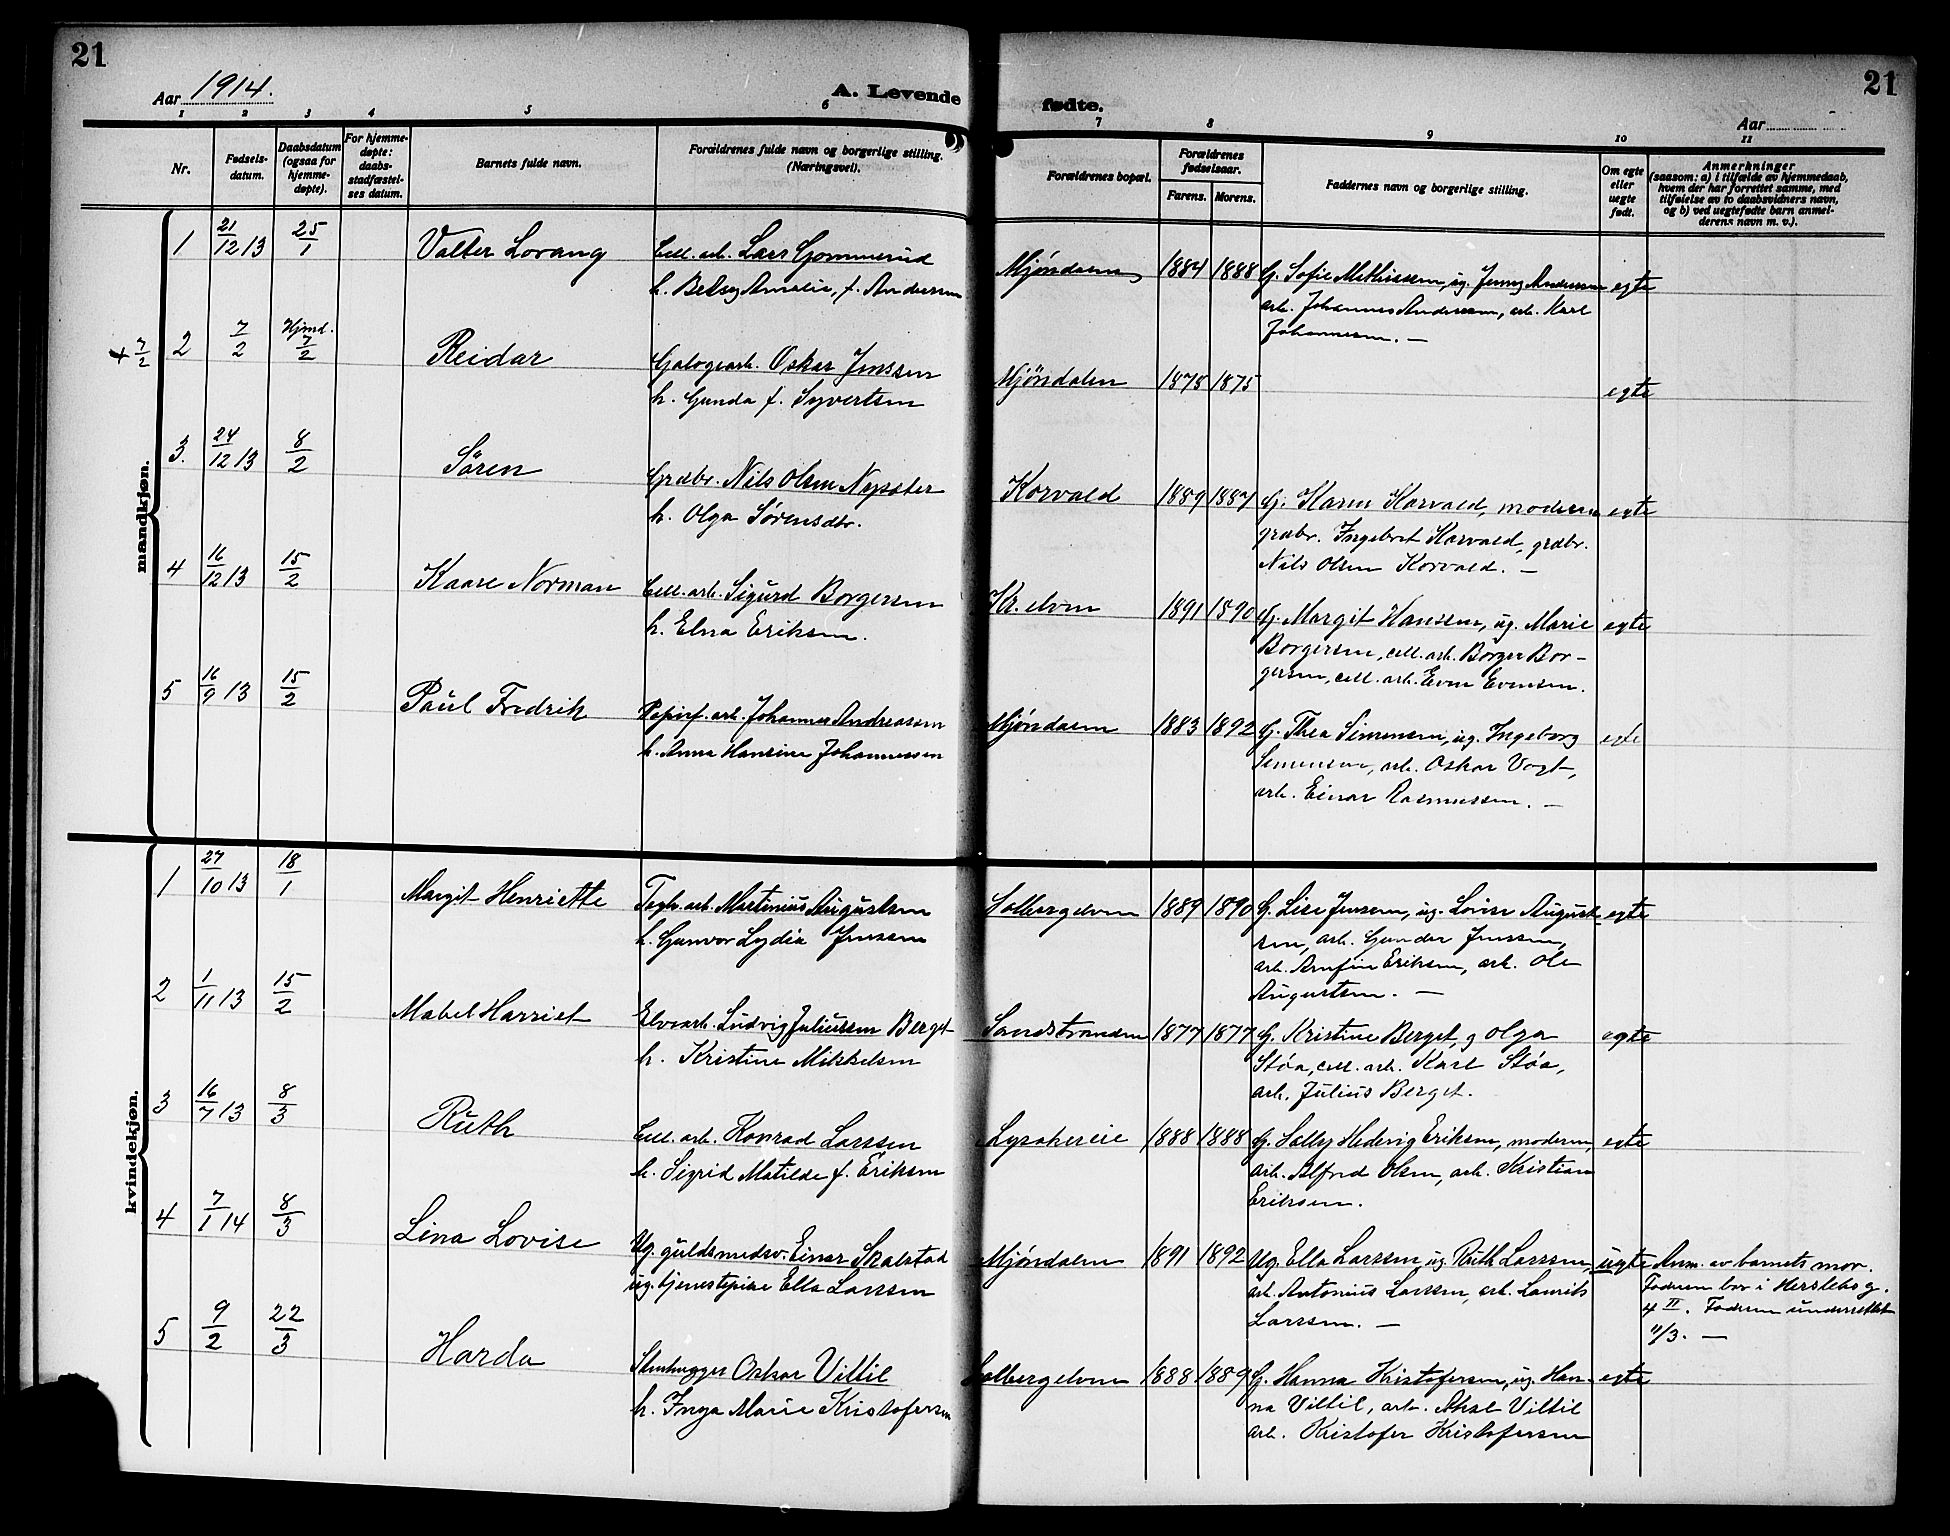 21
21
Aar 1914.
A. Levende
fødte.
Aar
1 2 3 4 5 6 7 8 9 10 11
Nr.
Fødsels-
datum.
Daabsdatum
(ogsaa for
hjemme-
døpte).
For hjemme-
døpte:
daabs-
stadfæstel-
ses datum.
Barnets fulde navn.
Forældrenes fulde navn og borgerlige stilling.
(Næringsvei).
Forældrenes bopæl.
Forældrenes
fødselsaar.
Farens. Morens.
Faddernes navn og borgerlige stilling.
Om egte
eller
uegte
født.
Anmerkninger
(saasom: a) i tilfælde av hjemmedaab,
hvem der har forrettet samme, med
tilføielse av to daabsvidners navn,
og b) ved uegtefødte barn anmel-
derens navn m. v.).
mandkjøn.
1 21/12 13 25/1 Valter Lovang Cell. arb. Lars Gommerud
h. Betsy Amalie, f. Andersen
Mjøndalen 1884 1888 G. Sofie Mathissen, ug. Jenny Andersen egte
arb. Johannes Andersen, arb. Karl
Johannesen. —
+ 7/2 2 7/2 Hjmd. 7/2 Reidar Galogearb. Oskar Jenssen
h. Gunda f. Syvertsen
Mjøndalen 1878 1875 egte
3. 24/12 13 8/2 Søren Grdbr. Nils Olsen
h. Olga Sørensdtr.
Korvald 1889 1887 G. Karen Korvald, moderen egte
grdbr. Ingebret Korvald, grdbr.
Nils Olsen Korvald. —
4 16/12 13 15/2 Kaare Norman Cell. arb. Sigurd Borgersen
h. Elna Eriksen.
Kr. elven 1891 1890 G. Margit Hanssen, ug. Marie egte
Borgersen, cell. arb. Borger Bor-
gersen, cell. arb. Even Evensen.
5 16/9 13 15/2 Paul Fredrik Papirf. arb. Johannes Andreassen
h. Anna Hansine Johannessen
Mjøndalen 1883 1892 G. Thea Simensen, ug. Ingeborg egte
Simensen, arb. Oskar Vogt,
arb. Einar Rasmussen. —
kvindekjøn.
1 27/10 13 18/1 Margit Henriette Teglv. arb. Martinius Augustsen
h. Gunvor Lydia Jenssen
Solbergelven 1889 1890 G. Lise Jenssen, ug. Lovise August- egte
sen, arb. Gunder Jenssen,
arb. Arnfin Eriksen, arb. Ole
Augustsen. —
2 1/11 13 15/2 Mabel Harriet Elvearb. Ludvig Juliussen Berget
h. Kristine Mikkelsen
Sandstranden 1877 1877 G. Kristine Berget, g Olga egte
Støa, cell. arb. Karl Støa,
arb. Julius Berget.
3 16/7 13 8/3 Ruth Cell. arb. Konrad Larssen
h. Sigrid Matilde f. Eriksen
Lysakereie 1888 1888 G. Solly Hedevig Eriksen, moderen, egte
arb. Alfred Olsen, arb. Kristian
Eriksen.
4 7/1 14 8/3 Lina Lovise Ug. guldsmedsv. Einar Skalstad
ug. tjenestepike Ella Larssen
Mjøndalen 1891 1892 Ug. Ella Larssen, ug. Ruth Larssen, uegte Anm. av barnets mor.
arb. Antonius Larssen, arb. Laurits
Larssen. —
Faderen bor i Herslebs g.
4 II. Faderen underrettet
11/3. —
5 9/2 22/3 Harda Stenhugger Oskar Viltil
h. Inga Marie Kristofersen
Solbergelven 1888 1889 G. Hanna Kristofersen, ug. Han- egte
na Viltil, arb. Aksel Viltil
arb. Kristofer Kristofersen